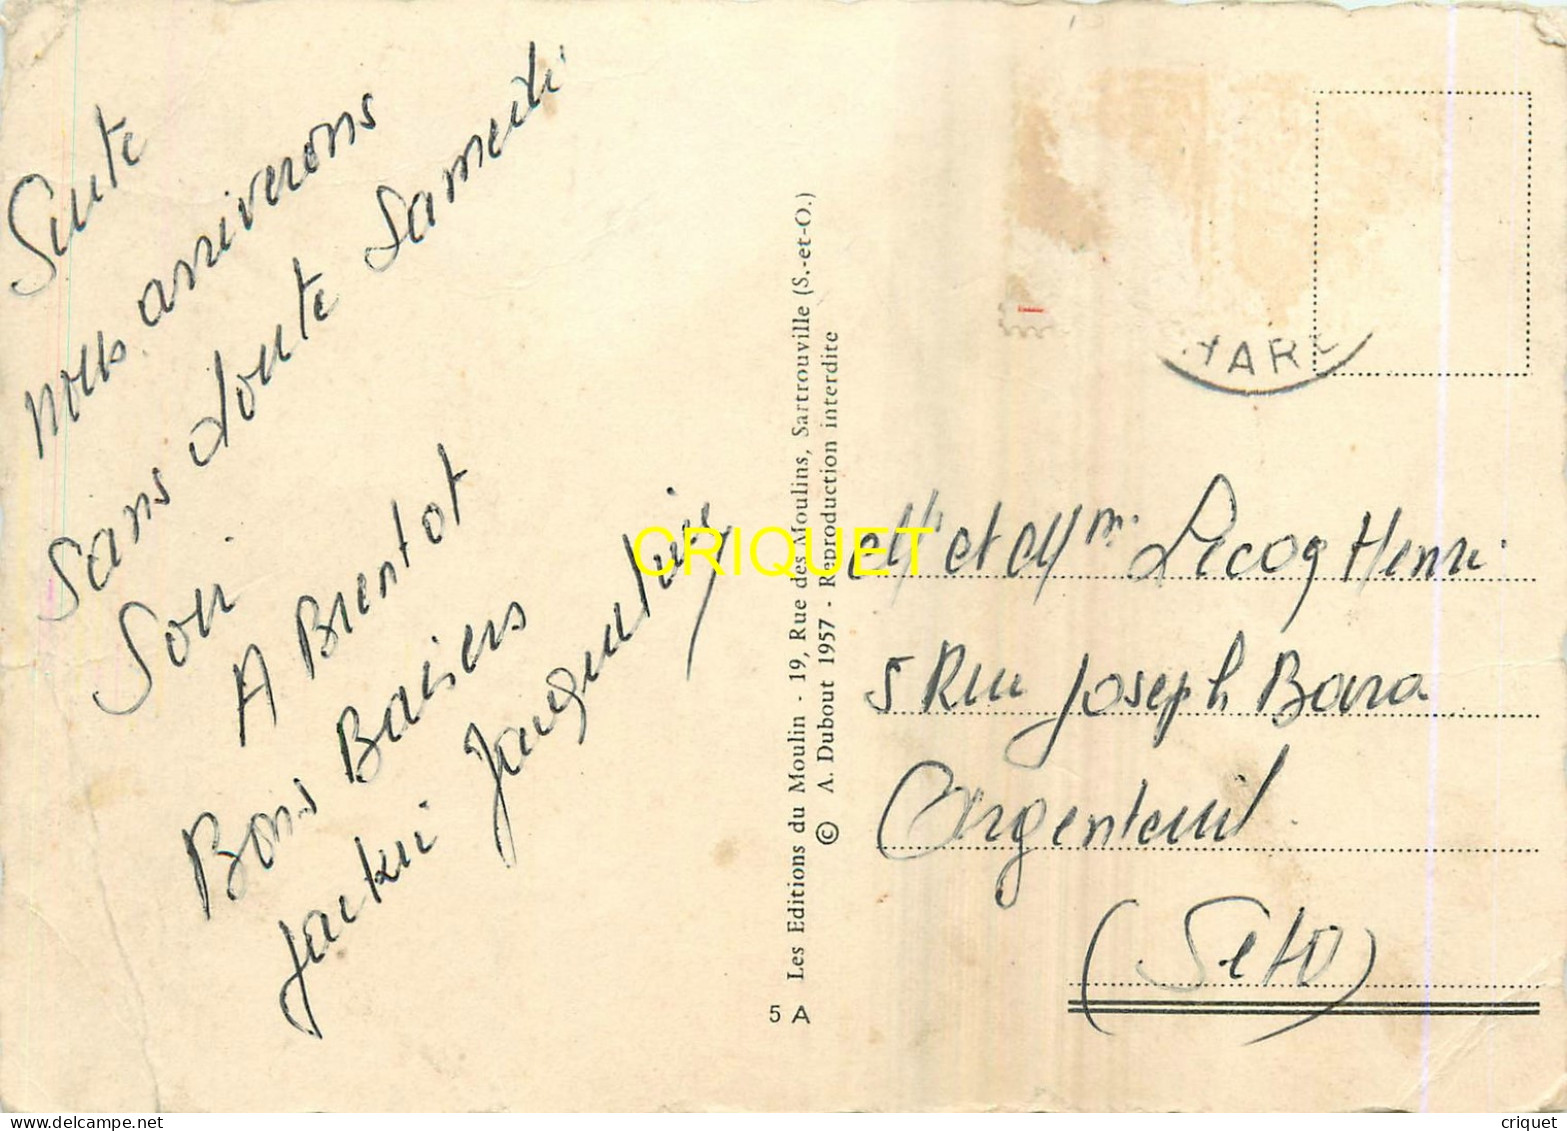 Suite
nous arriverons
sans doute Samedi
Soir.
A Bientot
Bons Baisers
Jackie Jacqueline
Les Editions du Moulin - 19, Rue des Moulins, Sartrouville (S.-et-O.)
© A. Dubout 1957 - Reproduction interdite
5 A
CRIQUET
Mr et Mme Lecoq Henri
5 Rue Joseph Bara
Argenteuil
(S et O)
criquet